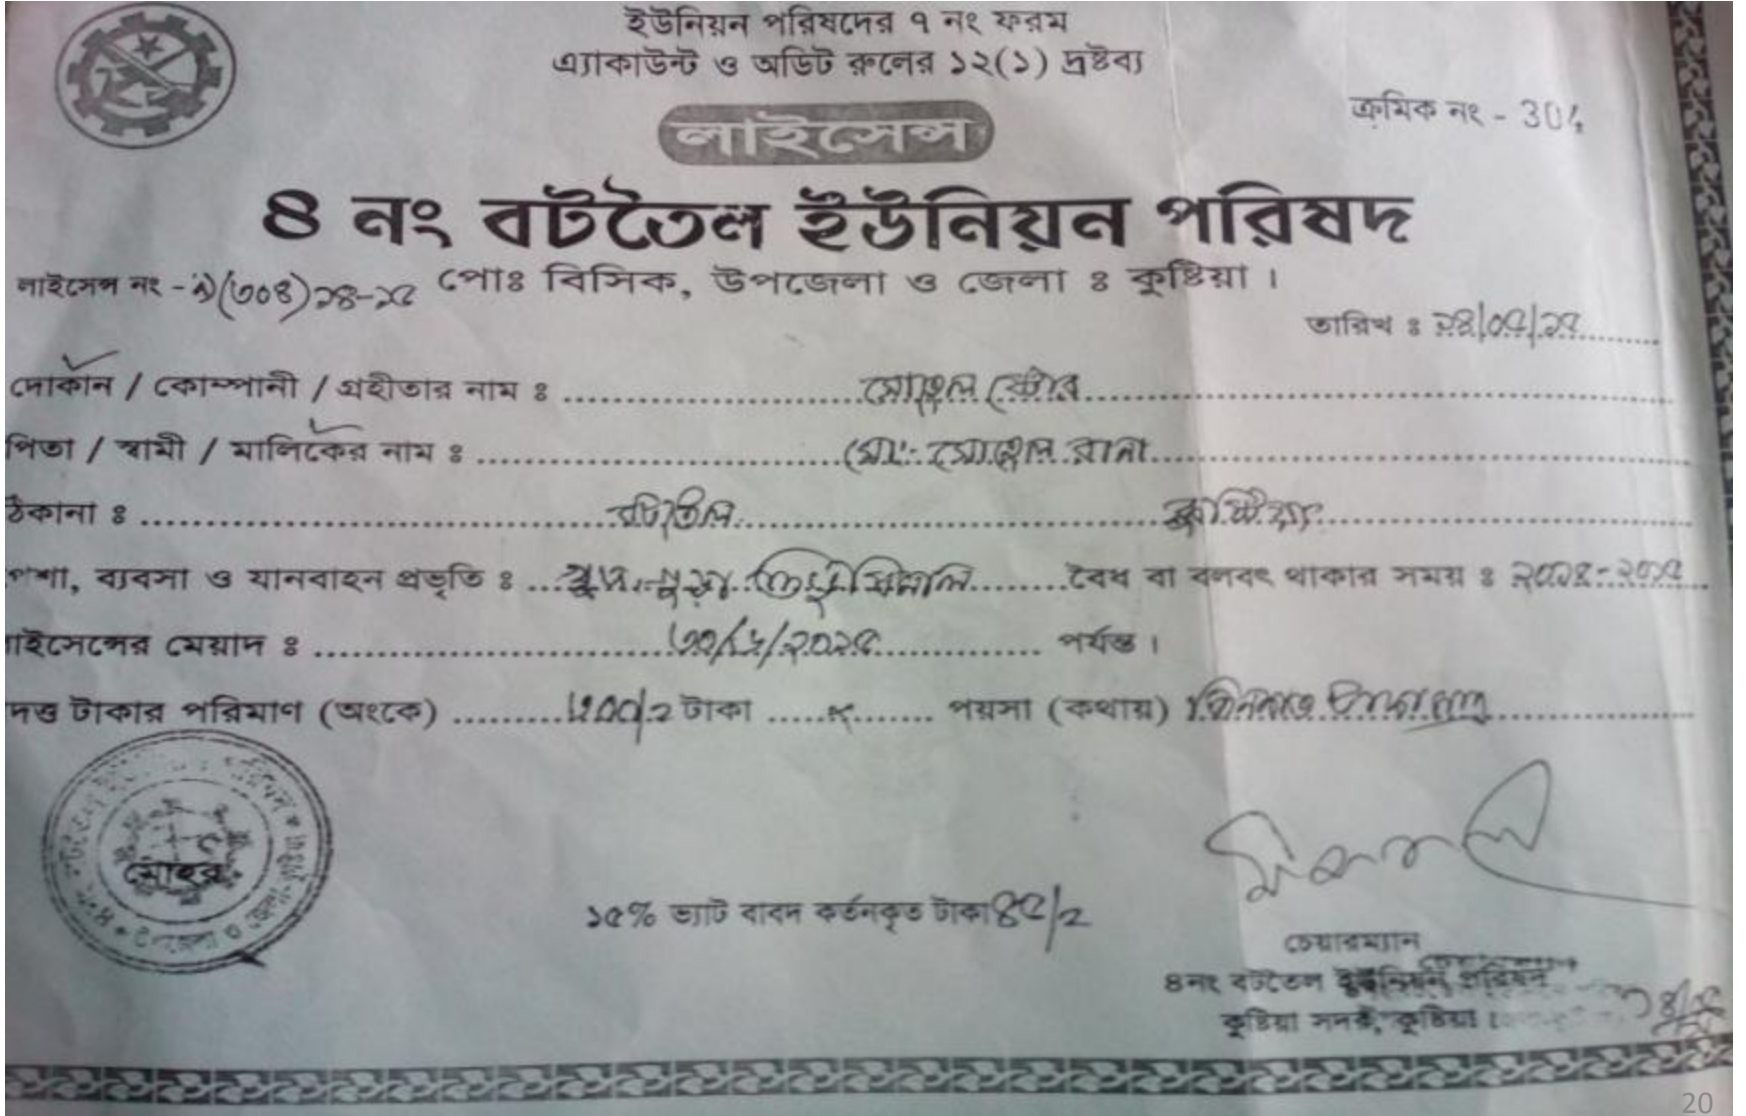 ইউনিয়ন পরিষদের ৭ নং ফরম
এ্যাকাউন্ট ও অডিট রুলের ১২(১) দ্রষ্টব্য
ক্রমিক নং - 304
লাইসেন্স
৪ নং বটতৈল ইউনিয়ন পরিষদ
লাইসেন্স নং - ৯(৩০৪)১৪-১৫ পোঃ বিসিক, উপজেলা ও জেলা ঃ কুষ্টিয়া।
তারিখ ঃ
দোকান / কোম্পানী / গ্রহীতার নাম ঃ সোহেল স্টোর
পিতা / স্বামী / মালিকের নাম ঃ মোঃ সোহেল রানা
ঠিকানা ঃ বটতৈল কুষ্টিয়া
পেশা, ব্যবসা ও যানবাহন প্রভৃতি ঃ বৈধ বা বলবৎ থাকার সময় ঃ ২০১৪-২০১৫
লাইসেন্সের মেয়াদ ঃ ৩০/৬/২০১৫ পর্যন্ত।
দত্ত টাকার পরিমাণ (অংকে) ৩০০/= টাকা পয়সা (কথায়) তিনশত টাকা মাত্র
মোহর
১৫% ভ্যাট বাবদ কর্তনকৃত টাকা ৪৫/=
চেয়ারম্যান
৪নং বটতৈল ইউনিয়ন পরিষদ
কুষ্টিয়া সদর, কুষ্টিয়া।
20